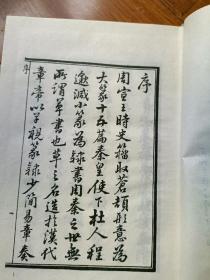 序
周宣王時史籀取蒼頡形意為
大篆十五篇秦皇使下杜人程
邈減小篆為隸書周秦之世無
所謂草書也草之名造於漢代
章帝以草視篆隸少簡易章奏
序